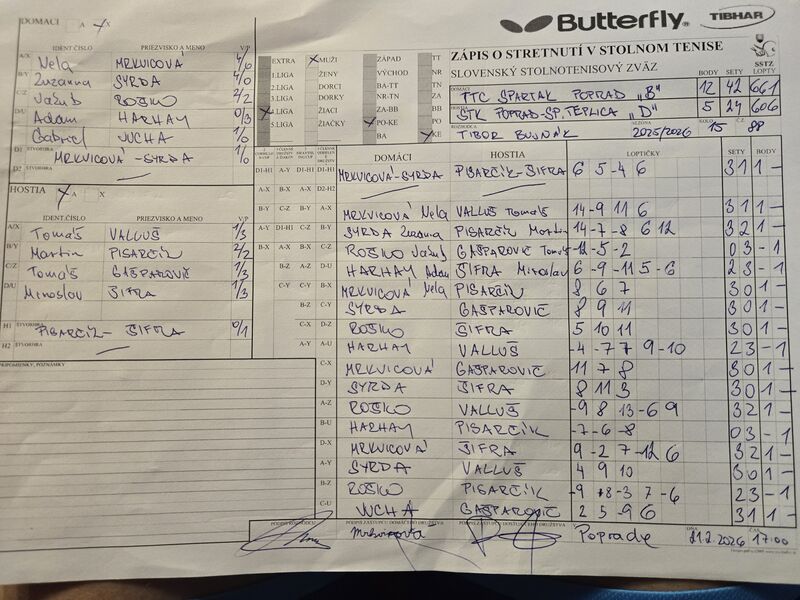 DOMÁCI A X
IDENT.ČÍSLO PRIEZVISKO A MENO V/P
A/X Nela MRKVICOVÁ 4/0
B/Y Zuzanna SYRDA 4/0
C/Z ROŠKO 2/2
D/U Adam HARHAY 0/3
Gabriel JUCHA 1/0
D1 ŠTVORHRA MRKVICOVÁ-SYRDA 1/0
D2
HOSTIA X A X
IDENT.ČÍSLO PRIEZVISKO A MENO V/P
A/X Tomáš VALLUŠ 1/3
B/Y Martin PISARČÍK 2/2
C/Z Tomáš GAŠPAROVIČ 1/3
D/U Miroslav ŠIFRA 1/3
H1 ŠTVORHRA PISARČÍK - ŠIFRA 0/1
H2 ŠTVORHRA
PRIPOMIENKY, POZNÁMKY
Butterfly TIBHAR
ZÁPIS O STRETNUTÍ V STOLNOM TENISE
SLOVENSKÝ STOLNOTENISOVÝ ZVÄZ SSTZ
EXTRA X MUŽI ZÁPAD TT
1.LIGA ŽENY VÝCHOD NR
2.LIGA DORCI BA-TT TN
3.LIGA DORKY NR-TN ZA
X 4.LIGA ŽIACI ZA-BB BB
5.LIGA ŽIAČKY X PO-KE PO
BA X KE
BODY SETY LOPTY
DOMÁCI TTC SPARTAK POPRAD "B" 12 42 661
HOSTIA STK POPRAD-SP.TEPLICA "D" 5 24 606
ROZHODCA TIBOR BUJNÁK SEZÓNA 2025/2026 KOLO 15 Č. 88
DOMÁCI HOSTIA LOPTIČKY SETY BODY
MRKVICOVÁ-SYRDA PISARČÍK-ŠIFRA 6 5 -4 6 3 1 1 -
MRKVICOVÁ Nela VALLUŠ Tomáš 14 -9 11 6 3 1 1 -
SYRDA Zuzanna PISARČÍK Martin 14 -7 -8 6 12 3 2 1 -
ROŠKO GAŠPAROVIČ Tomáš -12 -5 -2 0 3 - 1
HARHAY Adam ŠIFRA Miroslav 6 -9 -11 5 -6 2 3 - 1
MRKVICOVÁ Nela PISARČÍK 8 6 7 3 0 1 -
SYRDA GAŠPAROVIČ 8 9 11 3 0 1 -
ROŠKO ŠIFRA 5 10 11 3 0 1 -
HARHAY VALLUŠ -4 -7 7 9 -10 2 3 - 1
MRKVICOVÁ GAŠPAROVIČ 11 7 8 3 0 1 -
SYRDA ŠIFRA 8 11 3 3 0 1 -
ROŠKO VALLUŠ -9 8 13 -6 9 3 2 1 -
HARHAY PISARČÍK -7 -6 -8 0 3 - 1
MRKVICOVÁ ŠIFRA 9 -2 7 -12 6 3 2 1 -
SYRDA VALLUŠ 4 9 10 3 0 1 -
ROŠKO PISARČÍK -9 8 -3 7 -6 2 3 - 1
JUCHA GAŠPAROVIČ 2 5 -9 6 3 1 1 -
PODPIS ROZHODCU PODPIS ZÁSTUPCU DOMÁCEHO DRUŽSTVA PODPIS ZÁSTUPCU HOSŤUJÚCEHO DRUŽSTVA Poprade DŇA 21.2.2026 ČAS 17:00